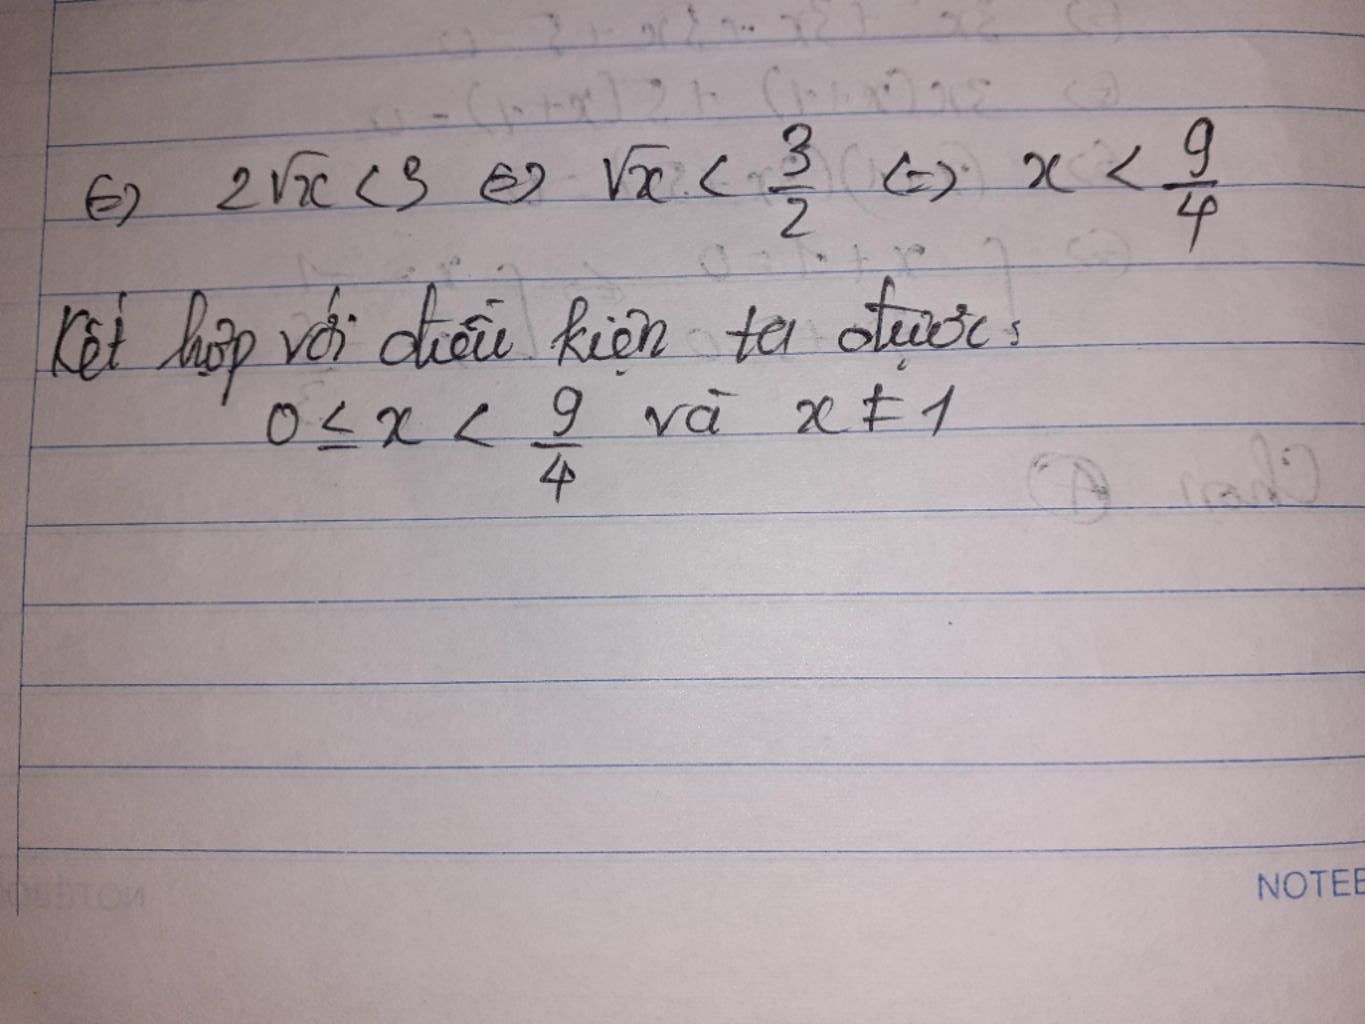 ⇔ 2√x < 3 ⇔ √x < 3/2 ⇔ x < 9/4
Kết hợp với điều kiện ta được:
0 ≤ x < 9/4 và x ≠ 1
NOTEB